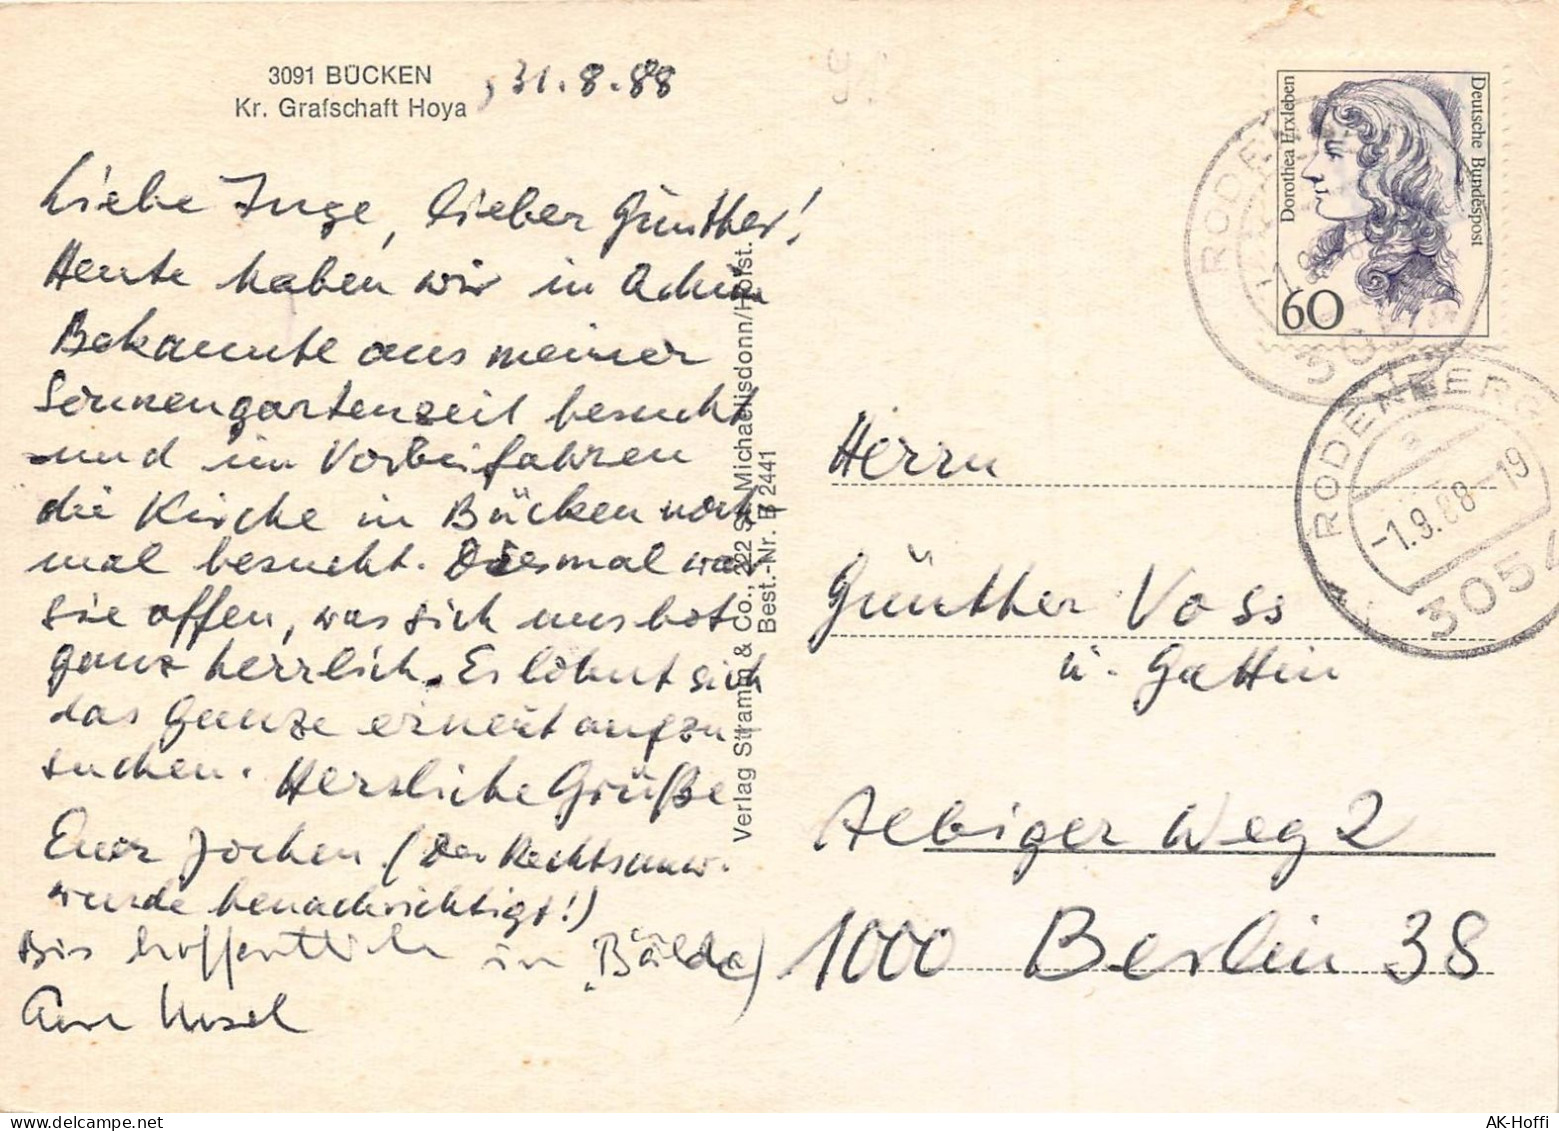 3091 BÜCKEN
Kr. Grafschaft Hoya
, 31.8.88
Liebe Inge, lieber Günther!
Heute haben wir in Achim
Bekannte aus meiner
Sonnengartenzeit besucht
und im Vorbeifahren
die Kirche in Bücken noch
mal besucht. Diesmal war
sie offen, was sich uns bot
ganz herrlich. Es lohnt sich
das Ganze erneut aufzu
suchen. Herzliche Grüße
Euer Jochen (Der Rechtsanw.
wurde benachrichtigt!)
Bis hoffentlich in "Bälde)
Eure Ursel
Verlag Stramm & Co., 222 St. Michaelisdonn/Holst.
Best.-Nr. B 2441
Deutsche Bundespost
Dorothea Erxleben
60
RODENBERG
-1.9.88-19
3054
Herrn
Günther Voss
u. Gattin
Aelbiger Weg 2
1000 Berlin 38
AK-Hoffi